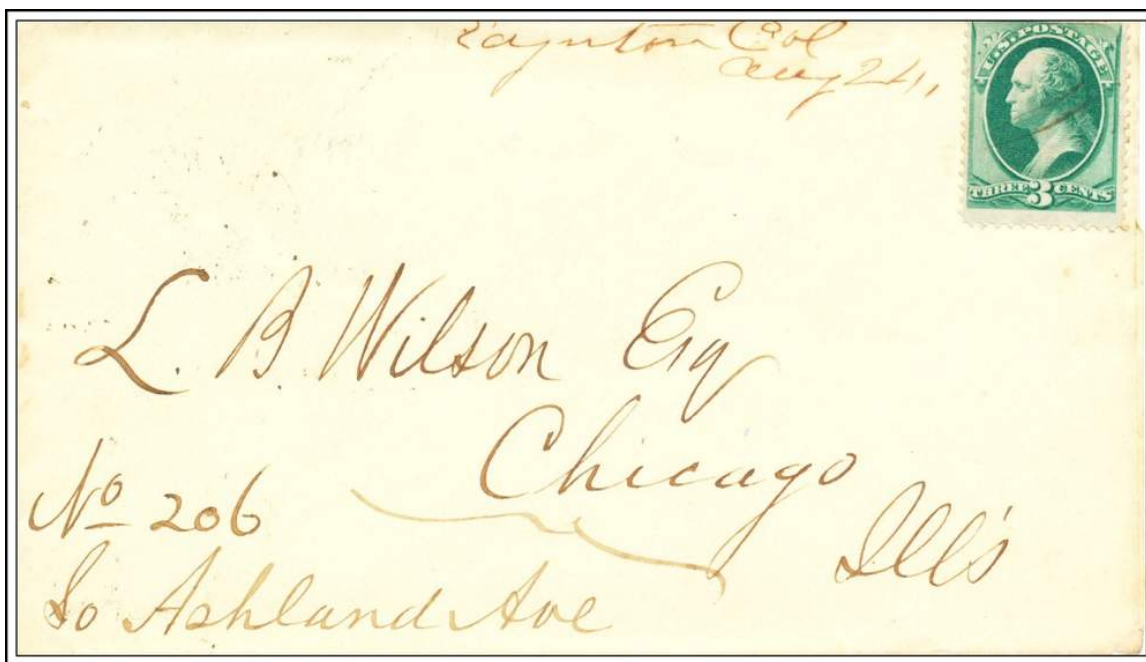 Col
Aug 24,
U.S. POSTAGE
THREE 3 CENTS
L. B. Wilson Esq
Chicago
Ills
No 206
So Ashland Ave